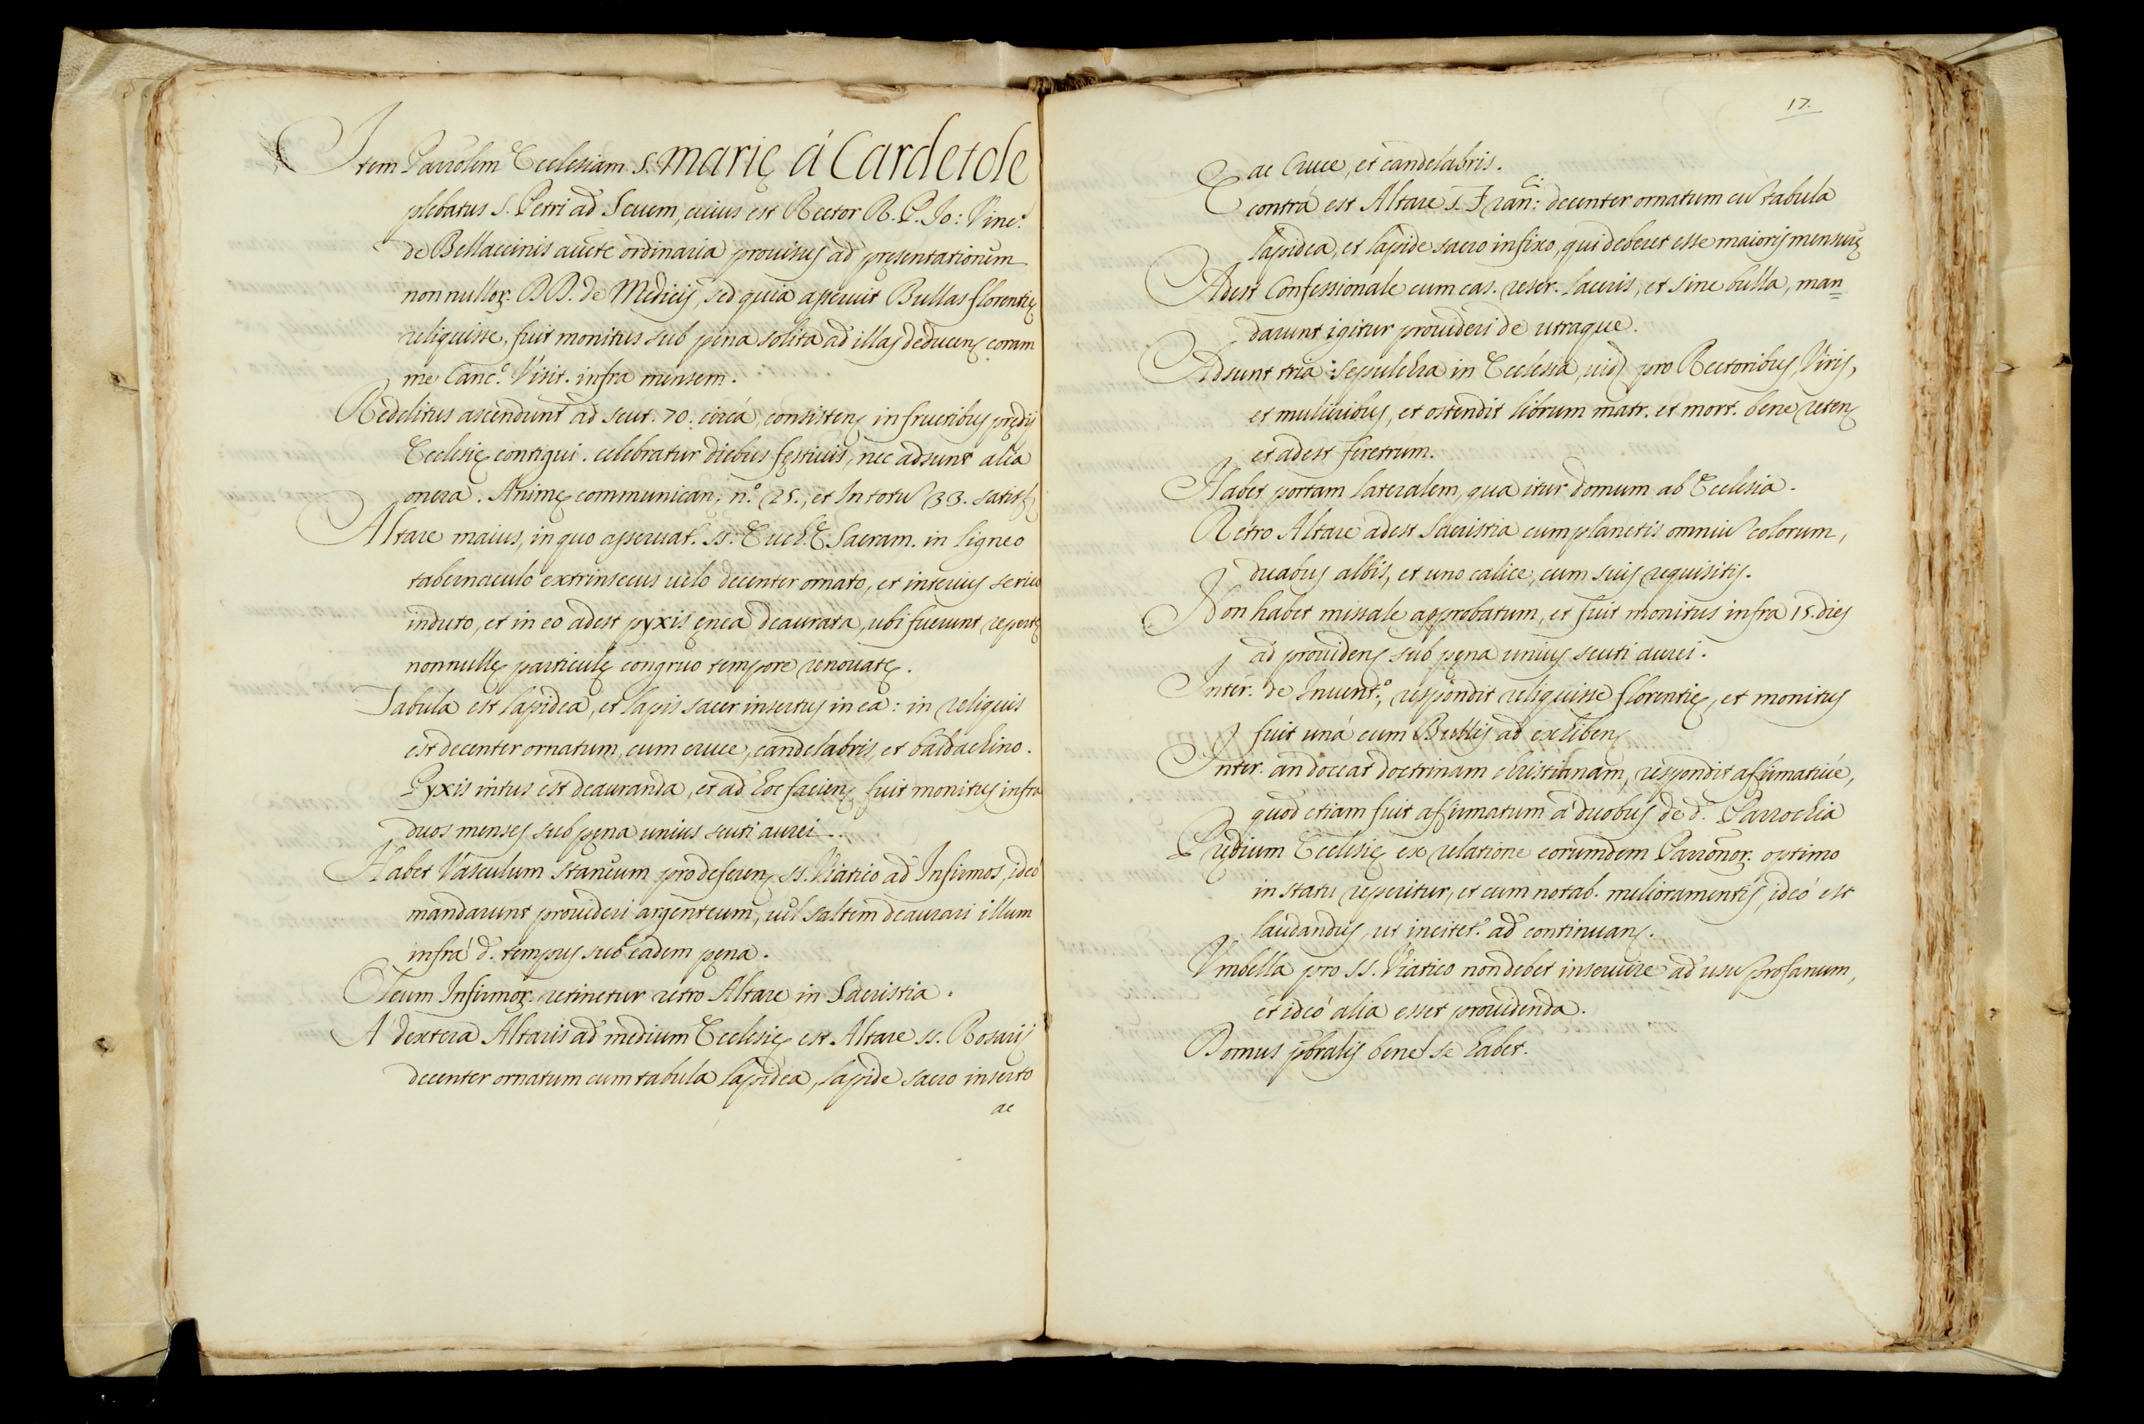 Item Parrolem Ecclesiam S. marię á Cardetole
plebatus S. Petri ad Seuem, cuius est Rector R. P. Jo: Vinc.
de Bellaccinis aucte ordinaria prouisus ad pręsentationem
nonnullor. DD. de Medicis, sed quia asseruit Bullas florentię
reliquisse, fuit monitus sub pęna solita ad illas deducen coram
me Canc.º Visit. infra mensem.
Redditus ascendunt ad scut. 70. circá, consisten in fructibus prędij
Ecclesię contigui. celebratur diebus festiuis, nec adsunt alia
onera. Animę communican: n.º 25., et In totu 33.
Altare maius, in quo asseruat. SS. Euch.ę Sacram. in ligneo
tabernaculo extrinsecus uelo decenter ornato, et interius serico
induto, et in eo adest pyxis ęnea deaurata, ubi fuerunt repertę
nonnullę particulę congruo tempore renouatę.
Tabula est lapidea, et lapis sacer insertus in ea: in reliquis
est decenter ornatum, cum cruce, candelabris, et baldachino.
Pyxis intus est deauranda, et ad hoc facien fuit monitus infra
duos menses sub pęna unius scuti aurei.
Habet Vasculum stanęum pro deferen SS. Viatico ad Infirmos, ideó
mandarunt prouideri argenteum, uel saltem deaurari illum
infrá d. tempus sub eadem pęna.
Oleum Infirmor. retinetur retro Altare in Sacristia.
A dextera Altaris ad medium Ecclesię est Altare SS. Rosarij
decenter ornatum cum tabula lapidea, lapide sacro inserto
ac
17.
ac Cruce, et candelabris.
E contrá est Altare S. Franc: decenter ornatum cu tabula
lapidea, et lapide sacro infixo, qui deberet esse maioris mensurę
Adest Confessionale cum cas. reser. laceris, et sine bulla, man=
darunt igitur prouideri de utraque.
Adsunt tria sepulchra in Ecclesia, uid pro Rectoribus, Viris,
et mulieribus, et ostendit librum matr. et mort. bene reten
et adest feretrum.
Habet portam lateralem, qua itur domum ab Ecclesia.
Retro Altare adest Sacristia cum planetis omniu colorum,
duabus albis, et uno calice, cum suis requisitis.
Non habet missale approbatum, et fuit monitus infra 15. dies
ad prouiden sub pęna unius scuti aurei.
Inter. de Inuent.º, respondit reliquisse florentię, et monitus
fuit uná cum Bullis ad exhiben
Inter. an doceat doctrinam christianam, respondit affirmatiuè,
quod etiam fuit affirmatum á duobus de d. Parrochia
Prędium Ecclesię ex relatione eorumdem Parronor. optimo
in statu reperitur, et cum notab. melioramentis, ideó est
laudandus, ut incitet. ad continuan.
Vmbella pro SS. Viatico non debet inseruire ad usu profanum,
et ideó alia esset prouidenda.
Domus pbralis bene se habet.